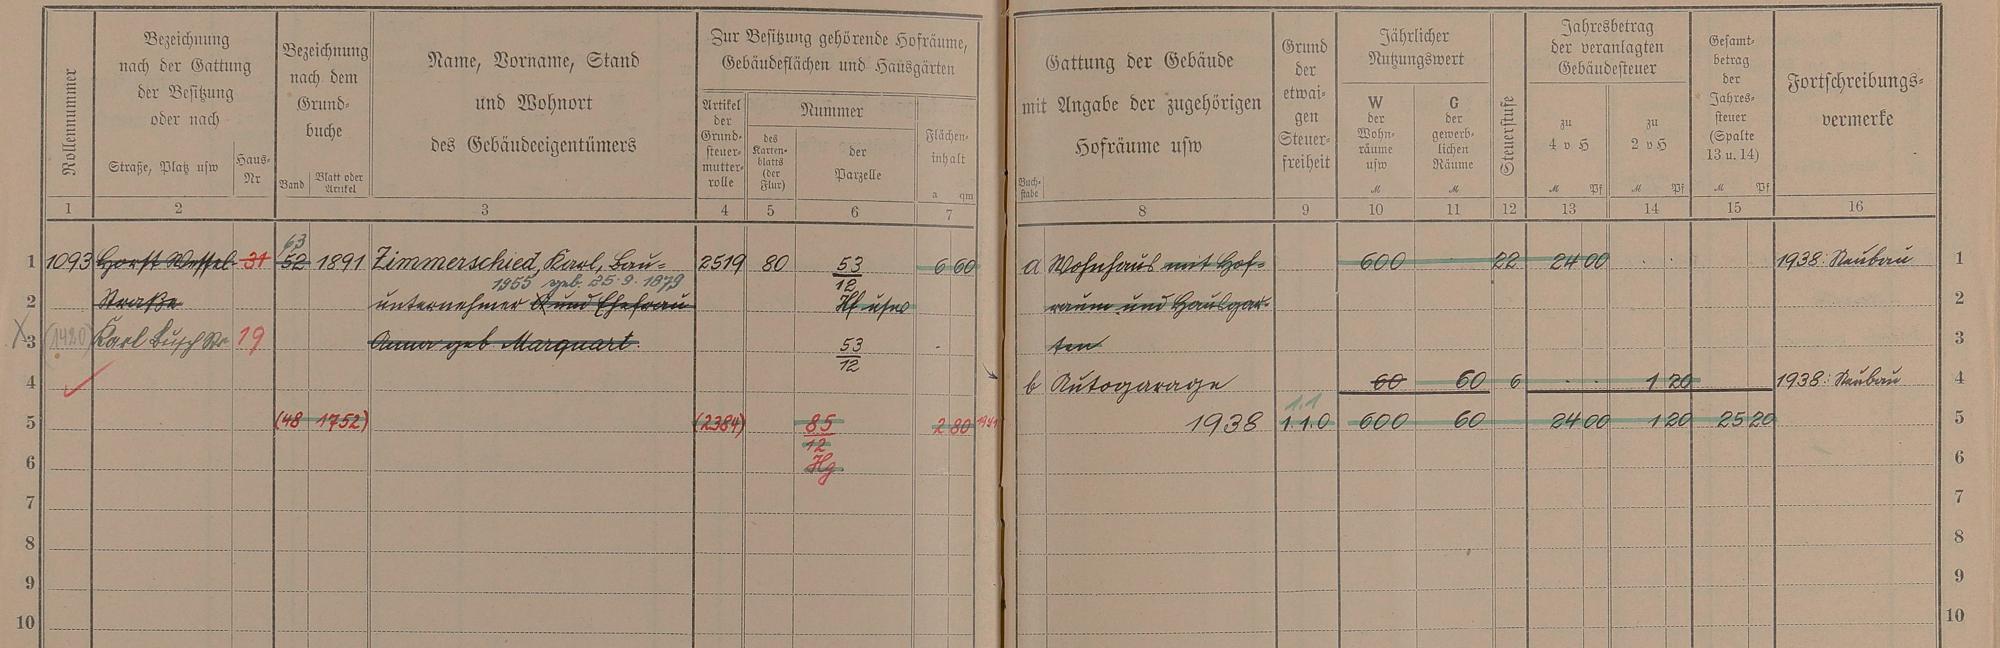 Rollennummer
Bezeichnung
nach der Gattung
der Besitzung
oder nach
Straße, Platz usw
Haus-
Nr
Bezeichnung
nach dem
Grund-
buche
Band
Blatt oder
Artikel
Name, Vorname, Stand
und Wohnort
des Gebäudeeigentümers
Zur Besitzung gehörende Hofräume,
Gebäudeflächen und Hausgärten
Artikel
der
Grund-
steuer-
mutter-
rolle
Nummer
des
Karten-
blatts
(der
Flur)
der
Parzelle
Flächen-
inhalt
a qm
Gattung der Gebäude
mit Angabe der zugehörigen
Hofräume usw
Buch-
stabe
Grund
der
etwai-
gen
Steuer-
freiheit
Jährlicher
Nutzungswert
W
der
Wohn-
räume
usw
M
G
der
gewerb-
lichen
Räume
M
Steuerstufe
Jahresbetrag
der veranlagten
Gebäudesteuer
zu
4 v H
M Pf
zu
2 v H
M Pf
Gesamt-
betrag
der
Jahres-
steuer
(Spalte
13 u. 14)
M Pf
Fortschreibungs-
vermerke
1 2 3 4 5 6 7 8 9 10 11 12 13 14 15 16
63
1 1093 Horst Wessel- 31 52 1891 Zimmerschied, Karl, Bau- 2519 80 53/12 6 60 a Wohnhaus mit Hof- 600 22 24 00 1938: Neubau 1
1955 geb. 25.9.1879
2 Straße unternehmer und Ehefrau Hf usw raum und Hausgar- 2
X 3 (1420) Karl Busch Str 19 Anna geb. Marquart. 53/12 ten 3
4 b Autogarage 60 60 6 1 20 1938: Neubau 4
1.1
5 (48 1752) (2384) 85/12 2 80 1941 1938 1.1.0 600 60 24 00 1 20 25 20 5
6 Hg 6
7 7
8 8
9 9
10 10